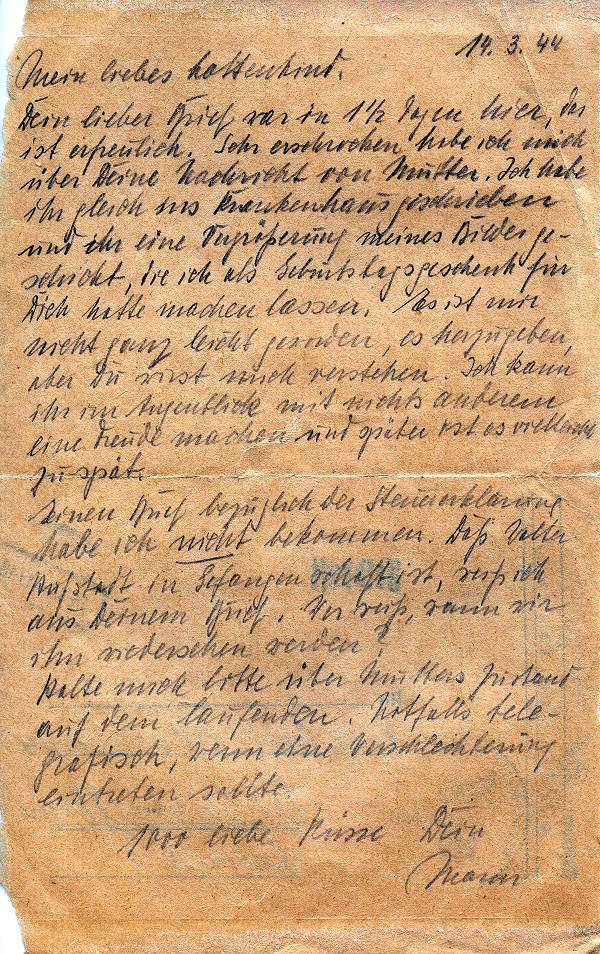 14. 3. 44
Mein liebes
Dein lieber Brief war in 1½ Tagen hier, das
ist erfreulich. Sehr erschrocken habe ich mich
über Deine Nachricht von Mutter. Ich habe
ihr gleich ins Krankenhaus geschrieben
und ihr eine Vergrößerung meines Bildes ge-
schickt, die ich als Geburtstagsgeschenk für
Dich hatte machen lassen. Es ist mir
nicht ganz leicht geworden, es herzugeben,
aber Du wirst mich verstehen. Ich kann
ihr im Augenblick mit nichts anderem
eine Freude machen und später ist es vielleicht
zu spät.
Deinen Brief bezüglich der Steuererklärung
habe ich nicht bekommen. Daß Walter
in Gefangenschaft ist, weiß ich
aus Deinem Brief. Wer weiß, wann wir
ihn wiedersehen werden?
Halte mich bitte über Mutters Zustand
auf dem laufenden. Notfalls tele-
grafisch, wenn eine Verschlechterung
eintreten sollte.
1000 liebe Küsse Dein
Mann